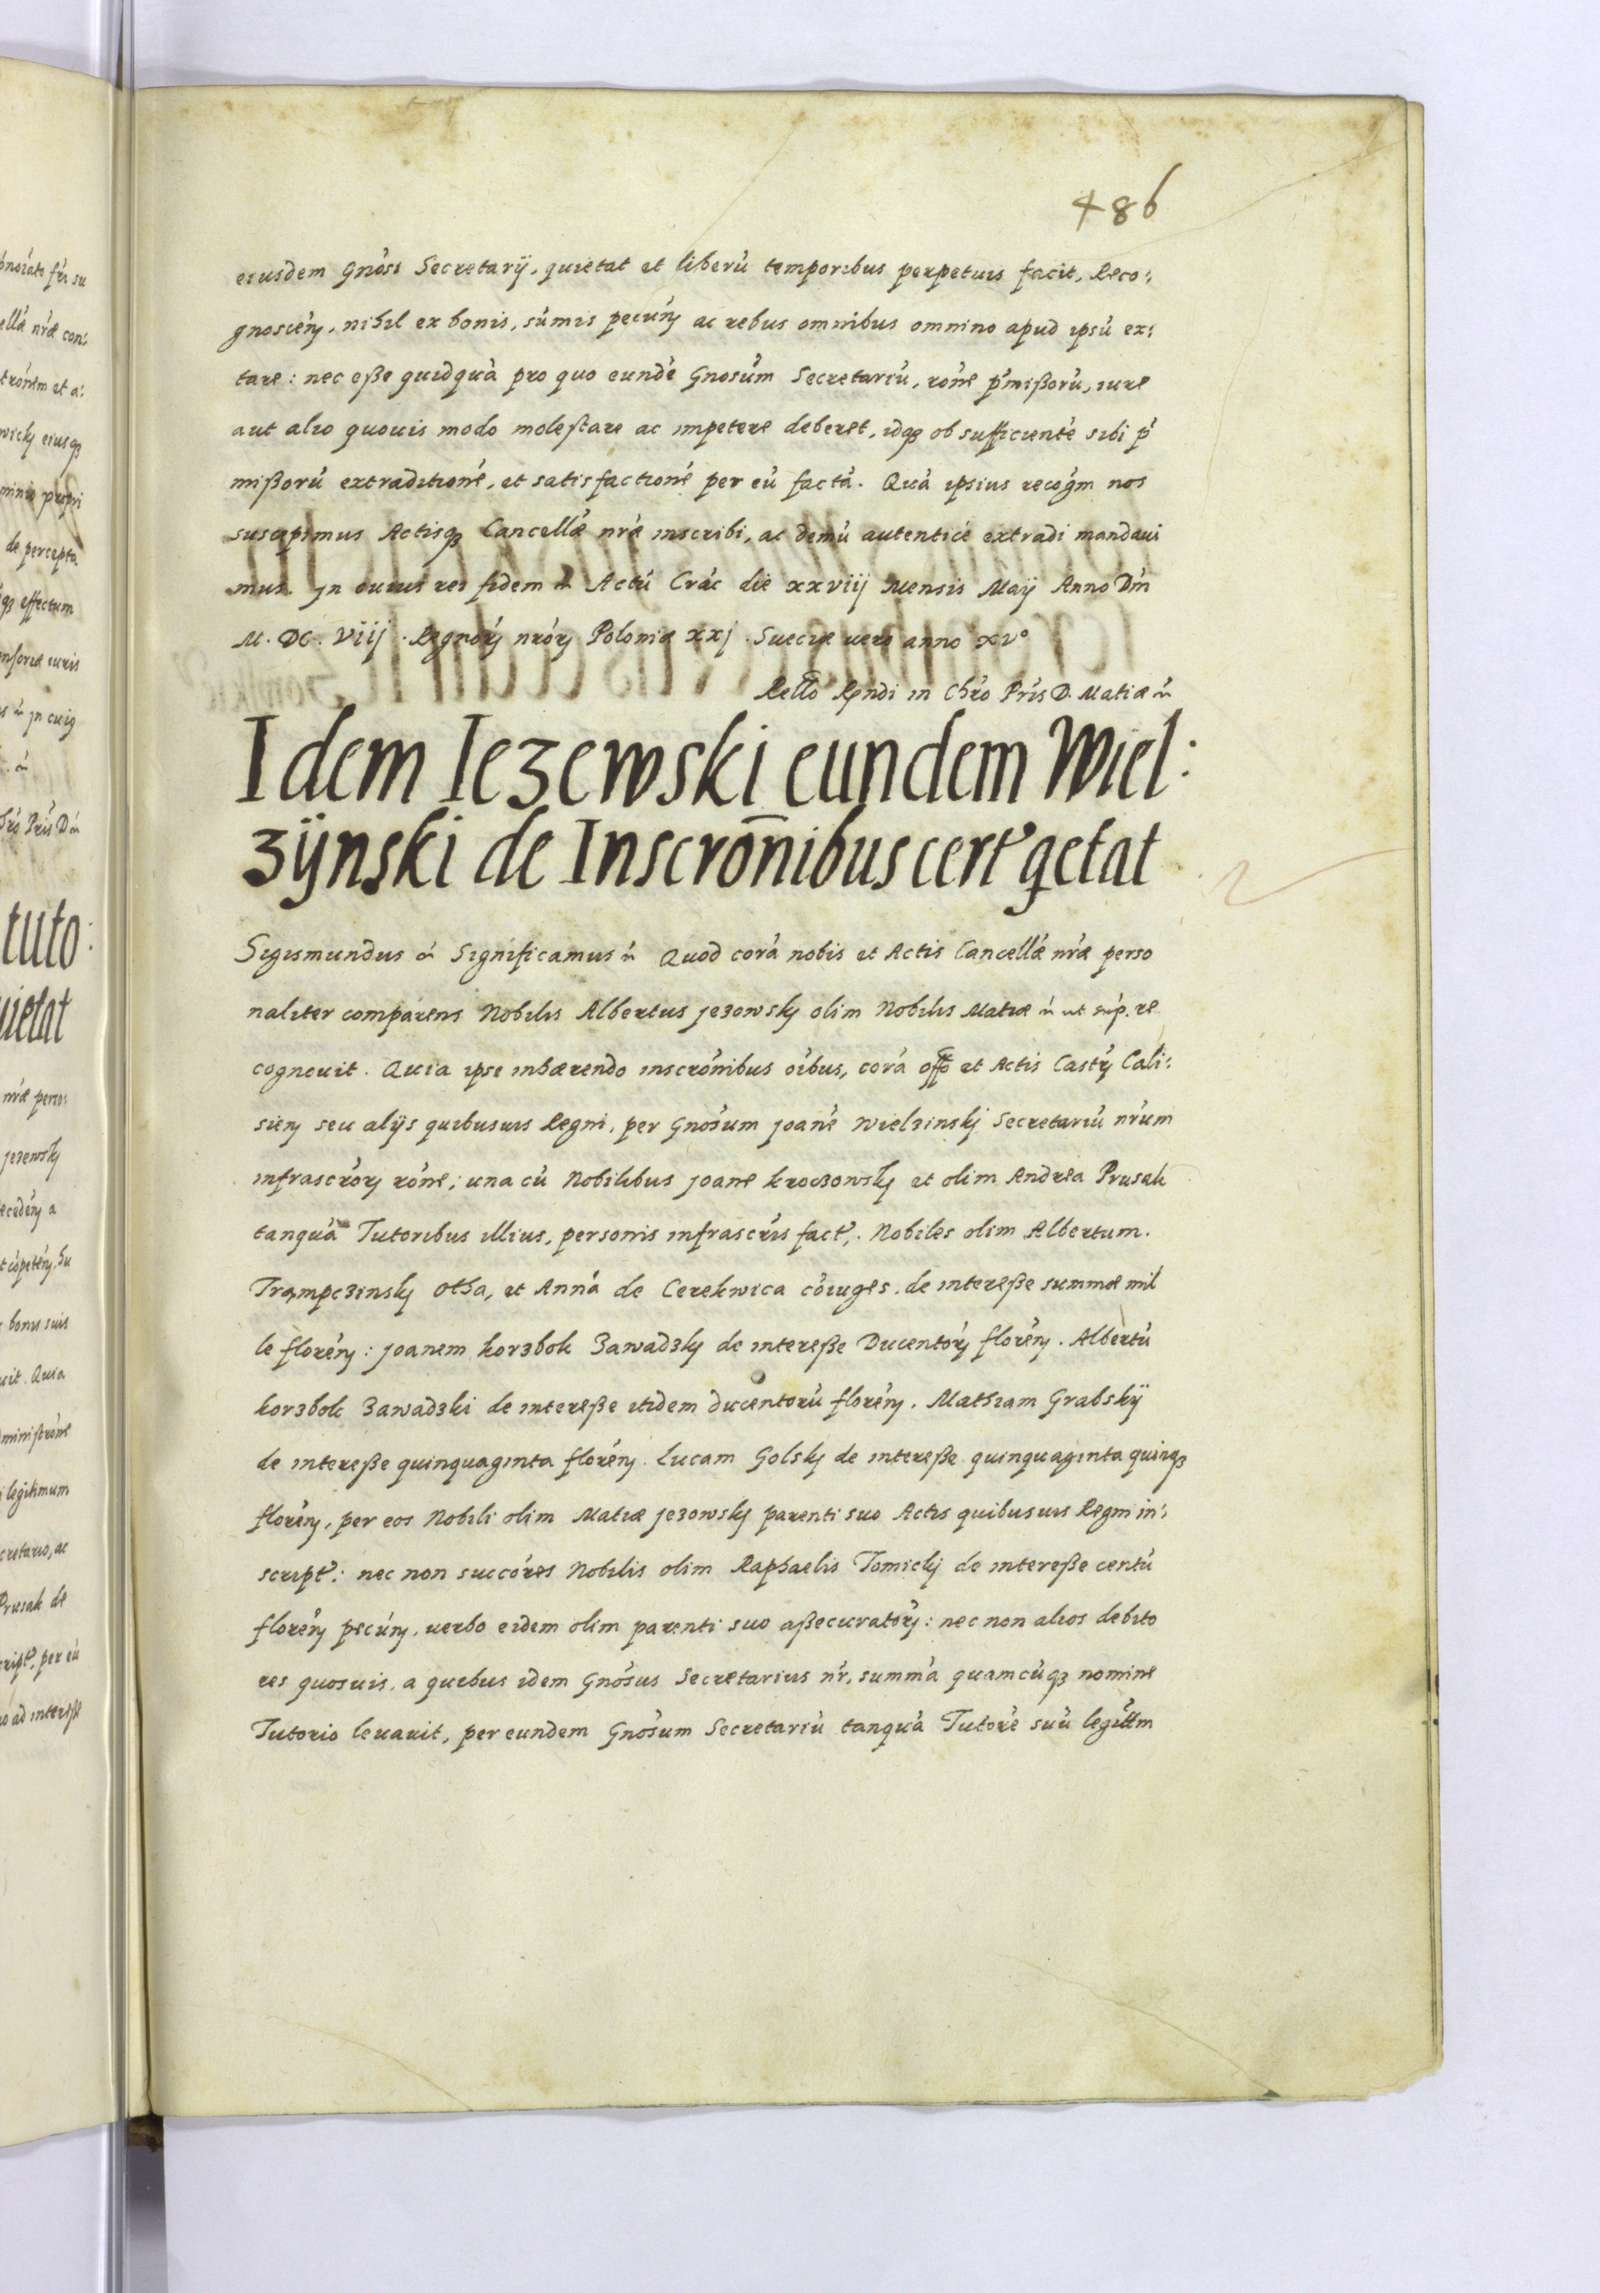 486
eiusdem Gnósi Secretarÿ, quietat et liberú temporibus perpetuis facit, Reco:
gnoscéń, nihil ex bonis, súmis pecúń ac rebus omnibus omnino apud ipsú ex:
tare: nec eße quidquá pro quo eundé Gnosúm Secretariú, róne ṕmißorú, iure
aut alio quouis modo molestare ac impetere deberet, idqȝ ob sufficienté sibi ṕ
mißorú extraditioné, et satisfactioné per eú factá. Quá ipsius recogm nos
suscepimus Actisqȝ Cancellæ nræ inscribi, ac demú autenticé extradi mandaui
mus. Jn cuius rei fidem Actú Crác die xxviij Mensis Maij Anno Dni
M. DC. viij. Regnorȝ nrórȝ Poloniæ xxj. Sueciæ uero anno xvº
Rello Rndi in Chro Pris D. Matiæ
Idem Iezewski eundem Wiel:
zÿnski de Inscronibus cert qetat
Sigismundus Significamus Quod corá nobis et Actis Cancellæ nræ perso
naliter comparens Nobilis Albertus Jezowskj olim Nobilis Matiæ ut sup. re
cognouit. Quia ipse inhærendo inscrónibus oíbus, corá offo et Actis Castrȝ Cali:
sień seu alijs quibusuis Regni, per Gnósum Joané Wielzinskj Secretariú nrum
infrascrórȝ róne; una cú Nobilibus Joane kroczowskj et olim Andrea Prusak
tanquá Tutoribus illius, personis infrascris fact. Nobiles olim Albertum.
Trąmpczinskj Otha, et Anná de Cerekwica cóiuges. de intereße summæ mil
le floréń: Joanem korzbok Zawadzkj de intereße Ducentorȝ floréń. Albertú
korzbok Zawadzki de intereße itidem ducentorú floréń. Mathiam Grabskÿ
de intereße quinquaginta floréń. Lucam Golskj de intereße quinquaginta quinqȝ
floréń, per eos Nobili olim Matiæ Jezowskj parenti suo Actis quibusuis Regni in:
script: nec non succóres Nobilis olim Raphaelis Tomickj de intereße centú
floréń pecúń, uerbo eidem olim parenti suo aßecuratorȝ: nec non alios debito
res quosuis, a quibus idem Gnósus Secretarius nr, summá quamcúqȝ nomine
Tutorio leuauit, per eundem Gnósum Secretariú tanquá Tutoré suú legittm